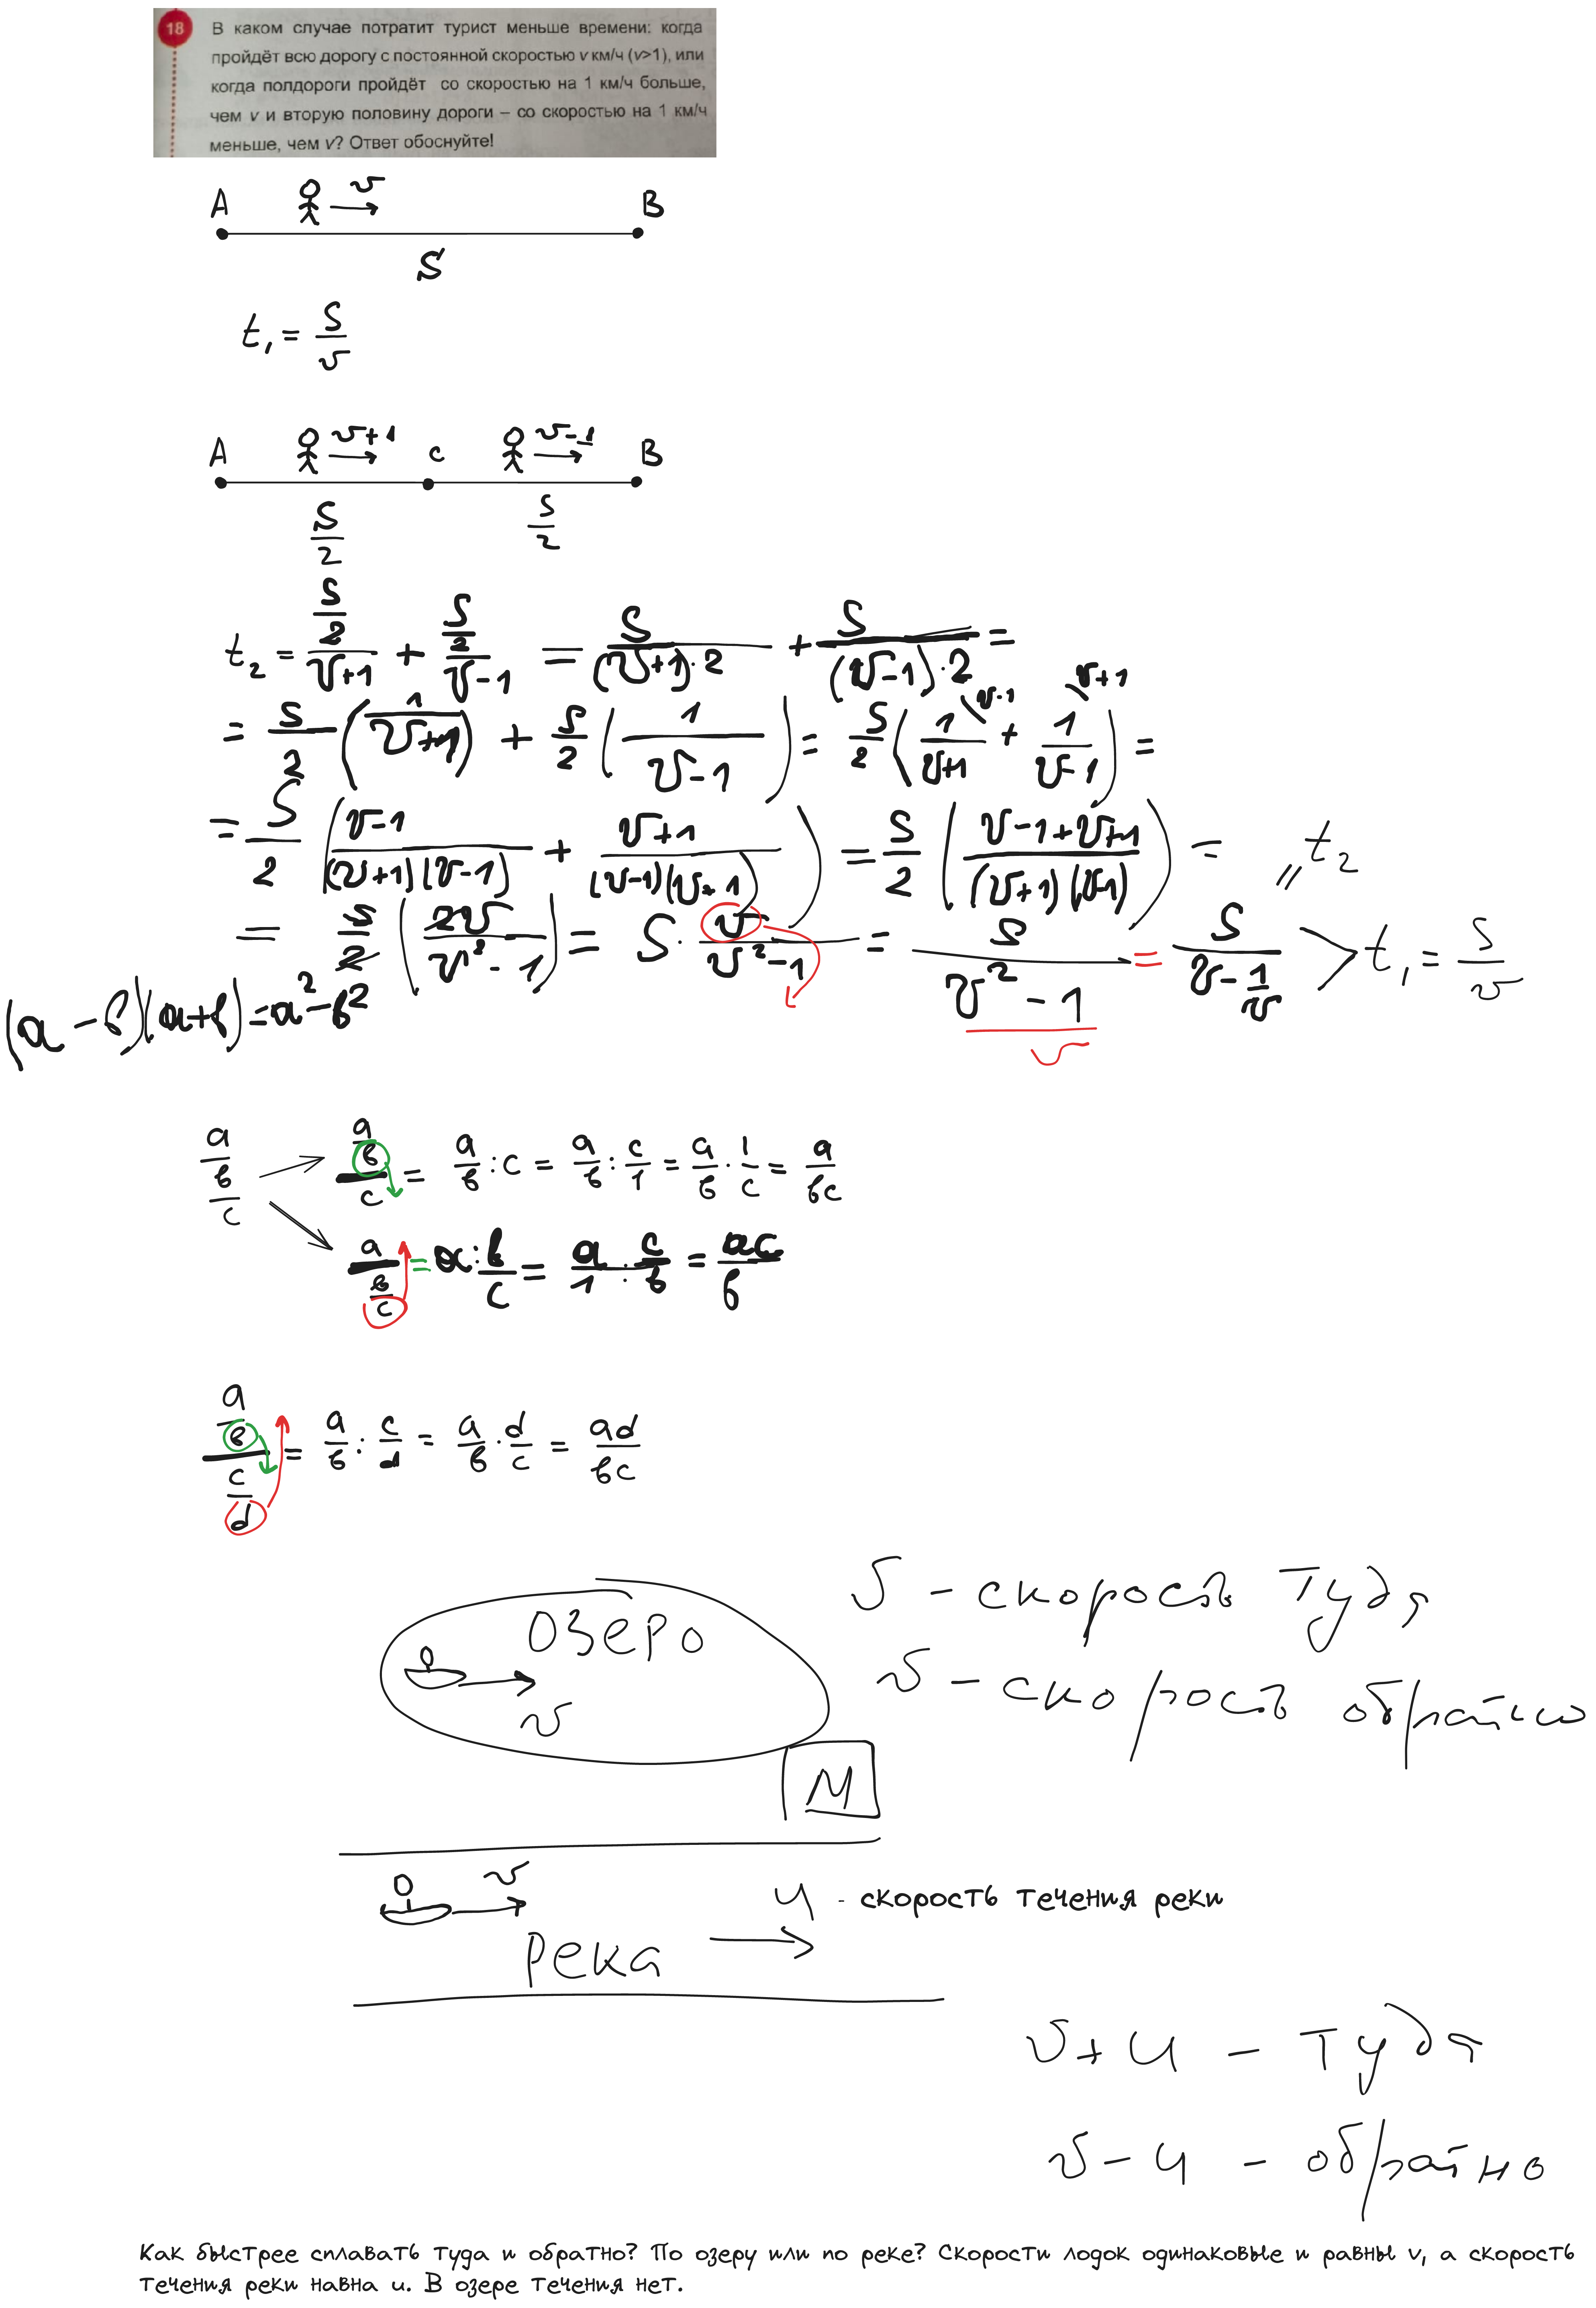 18 В каком случае потратит турист меньше времени: когда
пройдёт всю дорогу с постоянной скоростью v км/ч (v>1), или
когда полдороги пройдёт со скоростью на 1 км/ч больше,
чем v и вторую половину дороги – со скоростью на 1 км/ч
меньше, чем v? Ответ обоснуйте!
A v B
S
t₁ = S/v
A v+1 c v-1 B
S/2 S/2
t₂ = (S/2)/(v+1) + (S/2)/(v-1) = S/((v+1)·2) + S/((v-1)·2) =
= S/2 (1/(v+1)) + S/2 (1/(v-1)) = S/2 (1/(v+1) \v-1 + 1/(v-1) \v+1) =
= S/2 ((v-1)/((v+1)(v-1)) + (v+1)/((v-1)(v+1))) = S/2 ((v-1+v+1)/((v+1)(v-1))) = t₂
= S/2 (2v/(v²-1)) = S · v/(v²-1) = S/((v²-1)/v) = S/(v - 1/v) > t₁ = S/v
(a-b)(a+b) = a²-b²
a/b/c
(a/b)/c = a/b : c = a/b : c/1 = a/b · 1/c = a/(bc)
a/(b/c) = a : b/c = a/1 : c/b = ac/b
(a/b)/(c/d) = a/b : c/d = a/b · d/c = ad/bc
озеро
v
v - скорость туда
v - скорость обратно
М
v
u - скорость течения реки
река
v+u - туда
v-u - обратно
Как быстрее сплавать туда и обратно? По озеру или по реке? Скорости лодок одинаковые и равны v, а скорость
течения реки навна u. В озере течения нет.